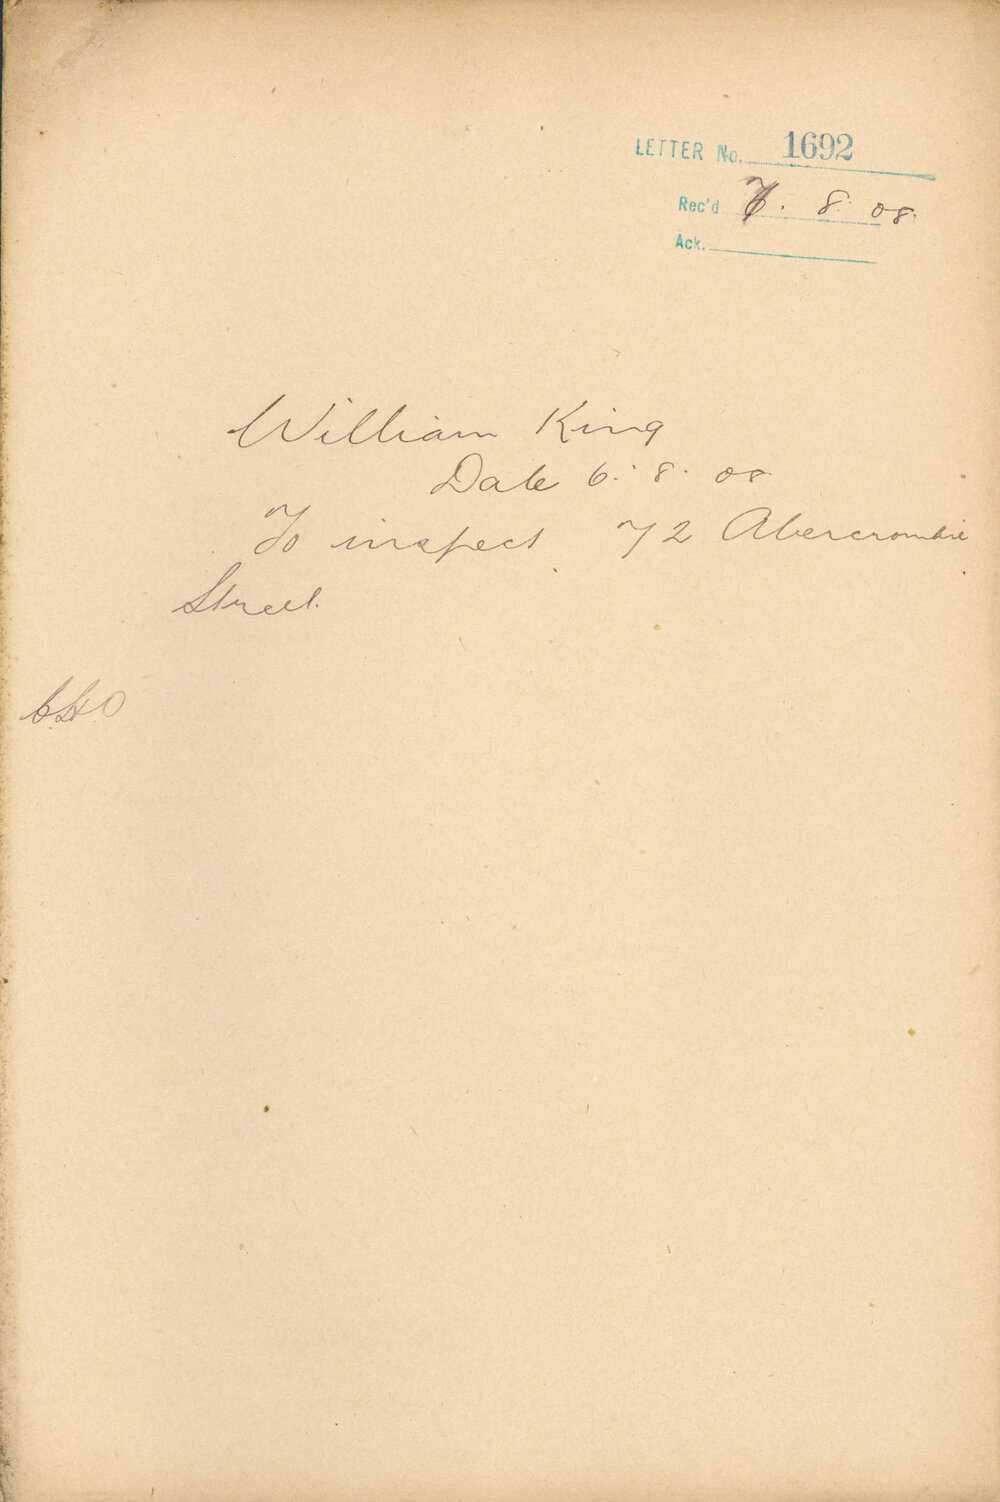 LETTER No. 1692
Rec'd 7. 8. 08.
Ack.
William King
Date 6. 8. 08.
To inspect 72 Abercrombie
Street.